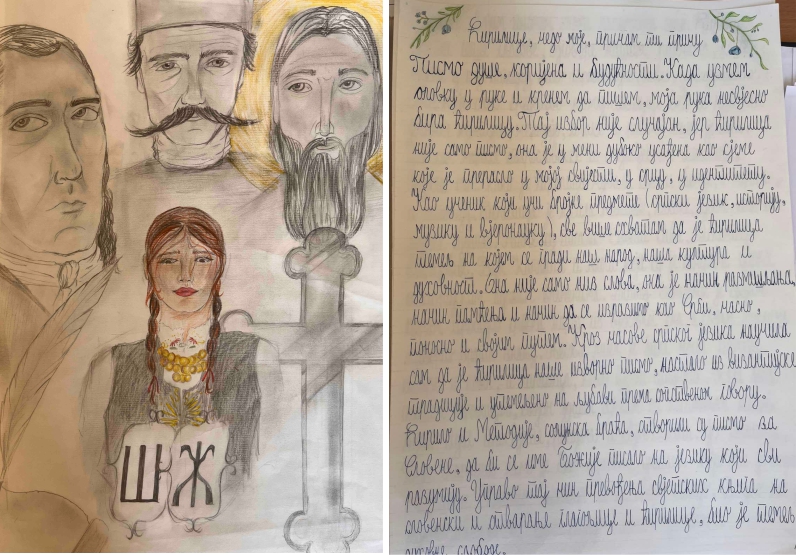 Ш Ж
Ћирилице, чедо моје, причам ти причу
Писмо душе, коријена и будућности. Када узмем
оловку у руке и кренем да пишем, моја рука несвјесно
бира ћирилицу. Тај избор није случајан, јер ћирилица
није само писмо, она је у мени дубоко усађена као сјеме
које је прерасло у мојој свијести, у срцу, у идентитету.
Као ученик који учи бројне предмете (српски језик, историју,
музику и вјеронауку), све више схватам да је ћирилица
темељ на којем се гради наш народ, наша култура и
духовност. Она није само низ слова, она је начин размишљања,
начин памћења и начин да се изразимо као Срби, часно,
поносно и својим путем. Кроз часове српског језика научила
сам да је ћирилица наше изворно писмо, настало из византијске
традиције и утемељено на љубави према сопственом говору.
Ћирило и Методије, солунска браћа, створили су писмо за
Словене, да би се име Божије писало на језику који сви
разумију. Управо тај чин превођења свјетских књига на
словенски и стварање глагољице и ћирилице, био је темељ
духовне слободе.